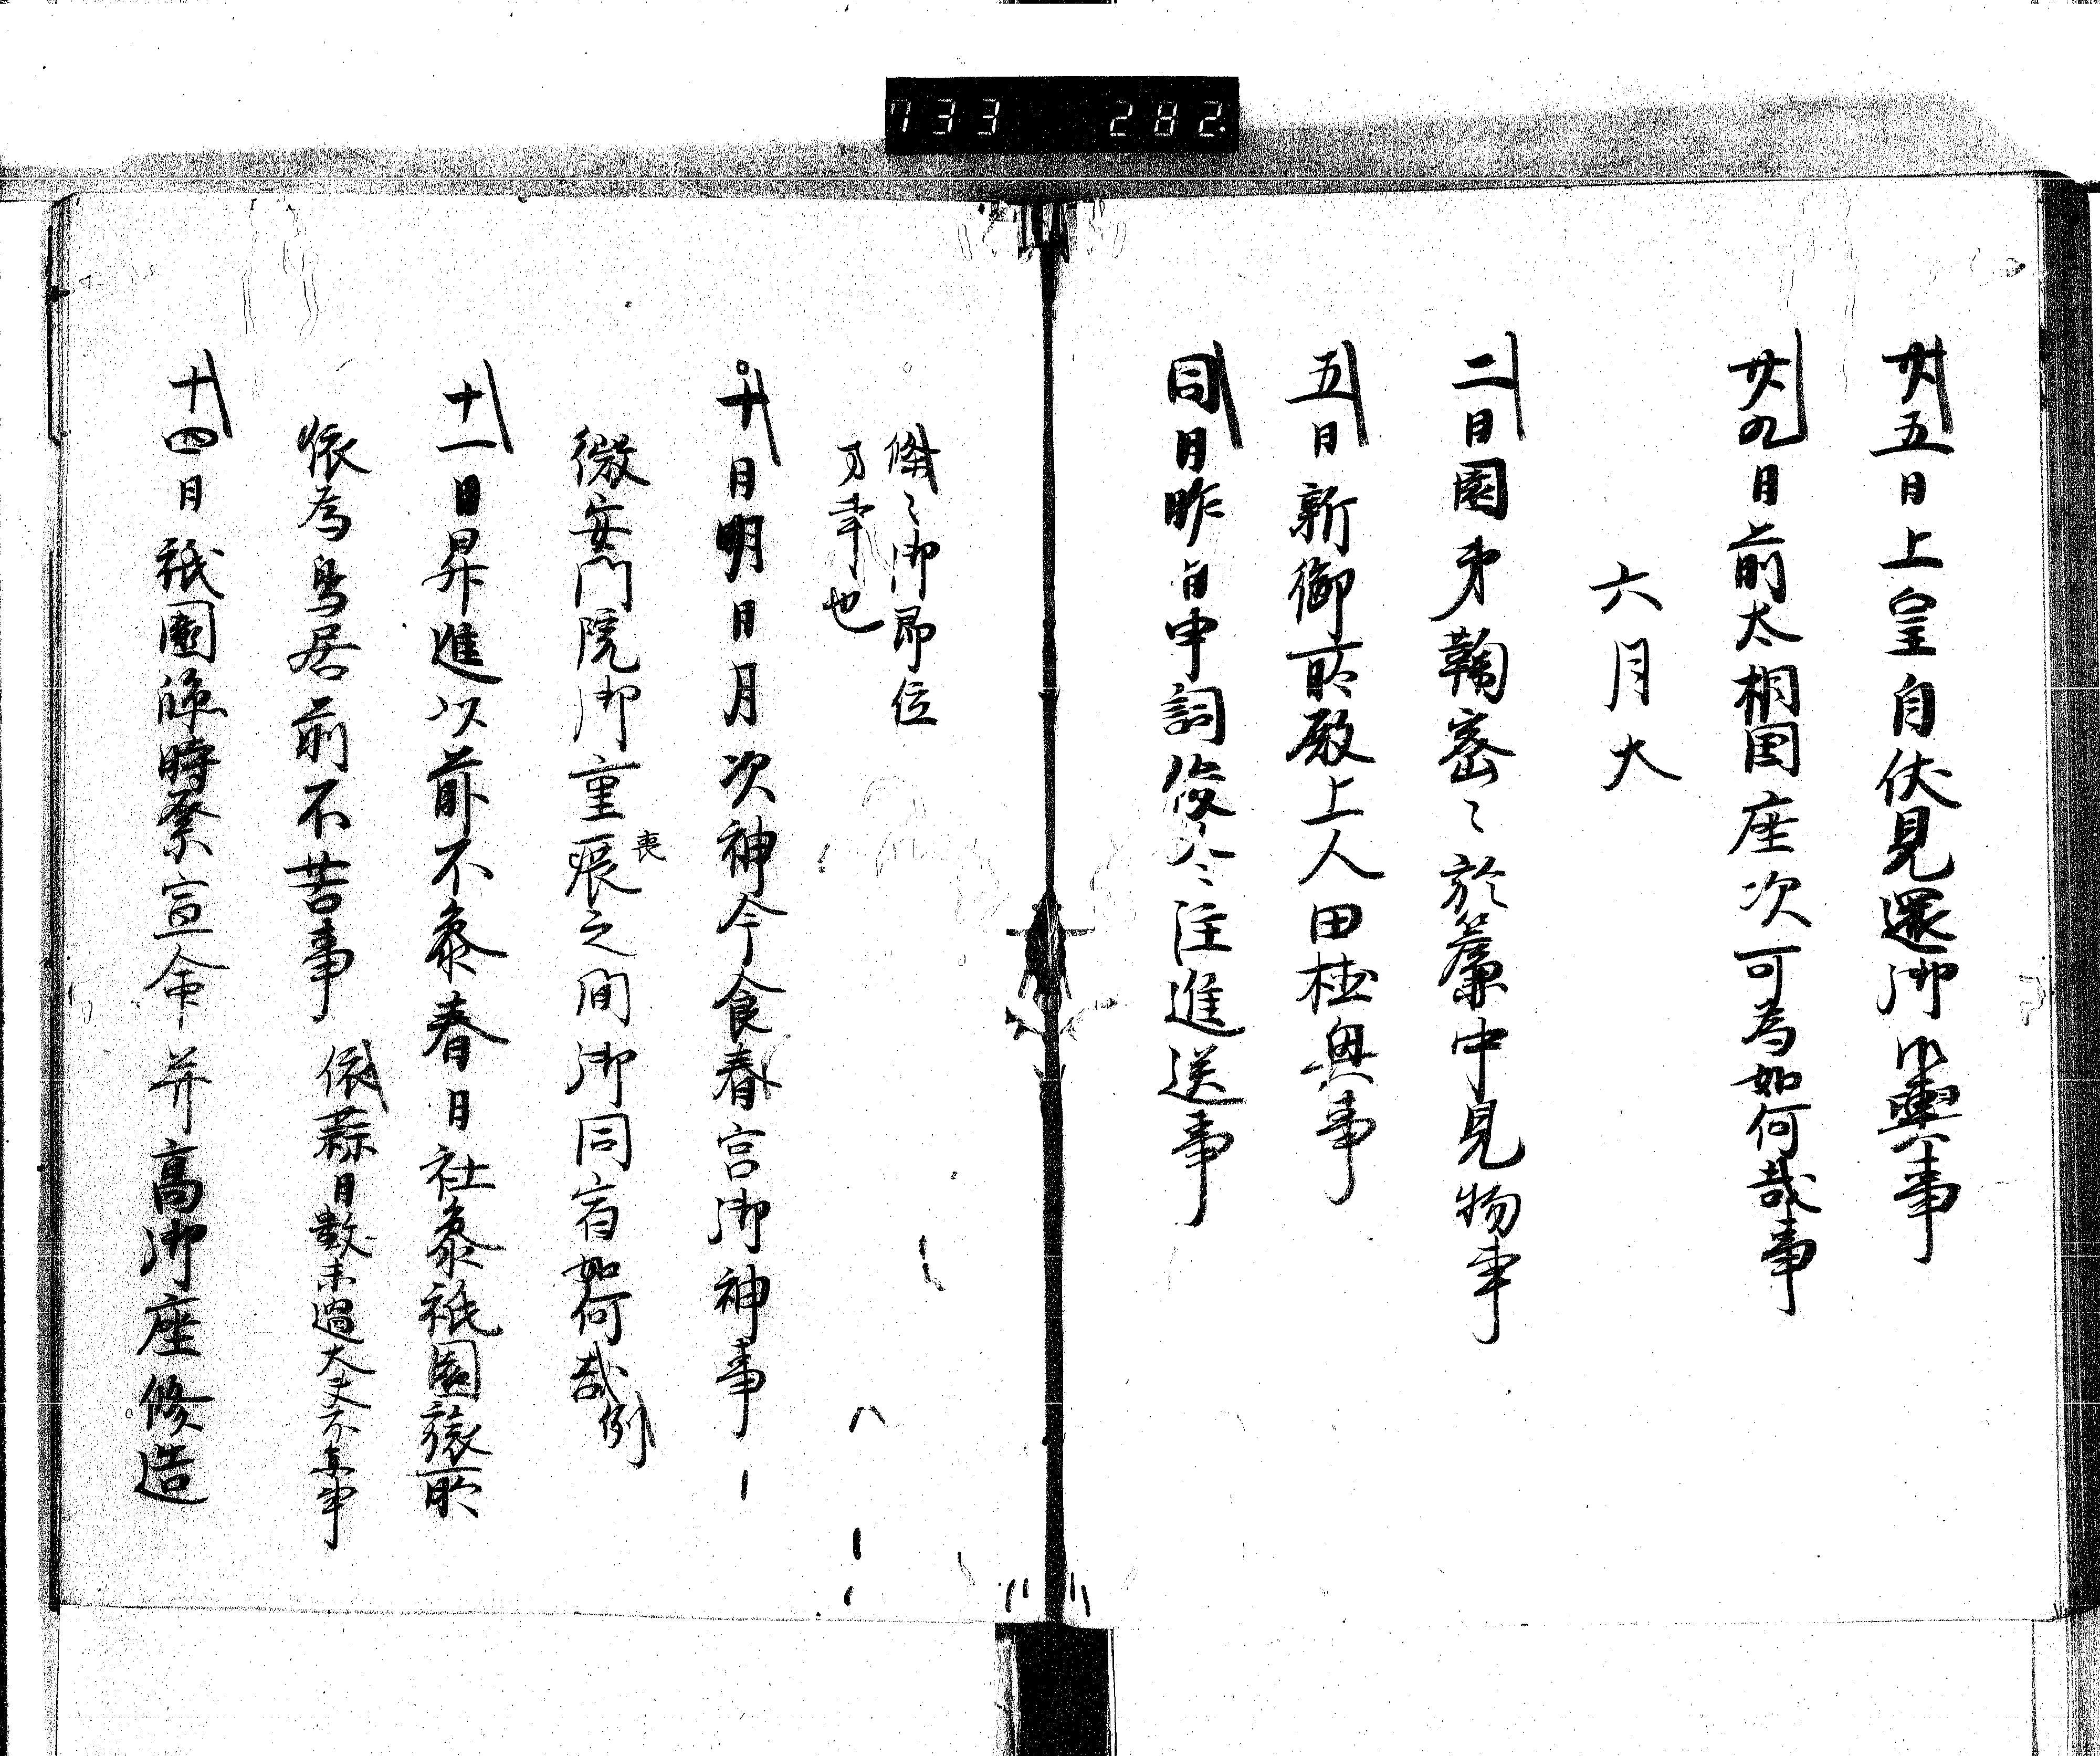 733 282
廿五日上皇自伏見還御御輿事
廿九日前太相国座次可為如何哉事
六月大
二日園第鞠密々於簾中見物事
五日新御所殿上人田植興事
同日昨日申詞後令注進送事
条々御即位
方事也
十日明日月次神今食春宮御神事
徽安門院御重喪之間御同宿如何哉例
十一日昇進以前不参春日社参祇園旅所
依為鳥居前不苦事 依蒜日数未過大丈不参事
十四日祇園臨時祭宣命并高御座修造